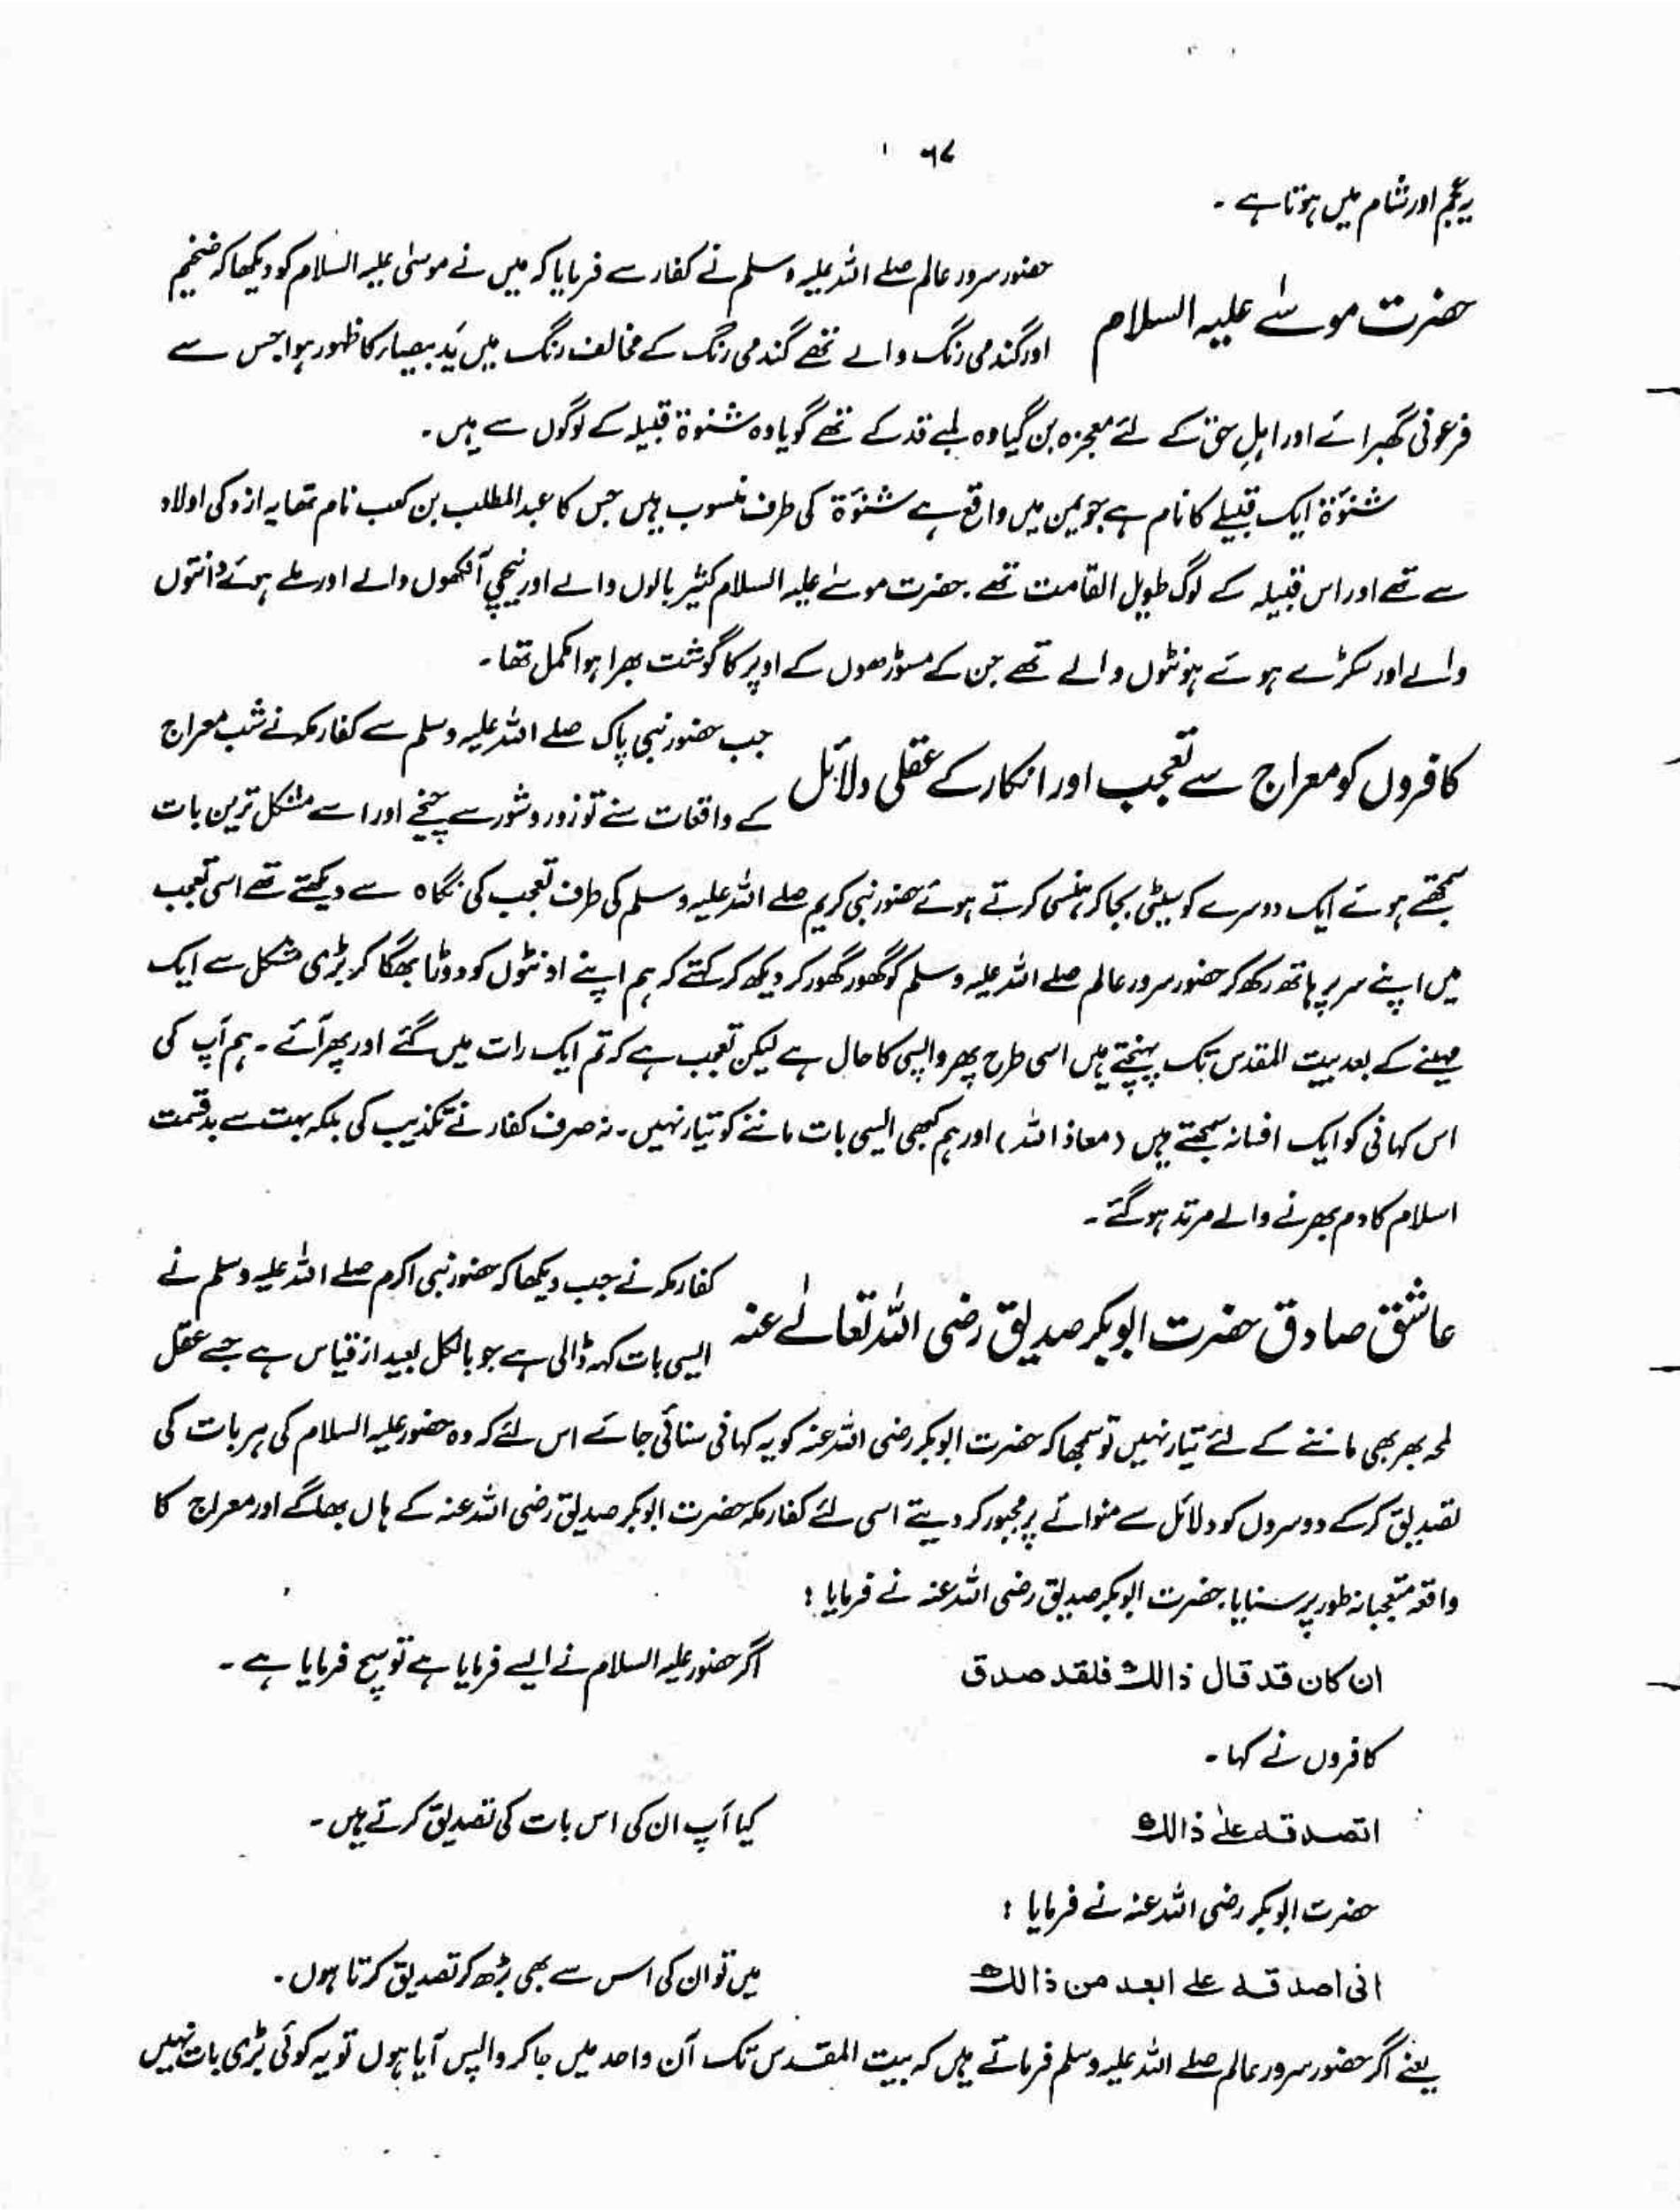 ۶۷
یہ عجم اور شام میں ہوتا ہے ۔
حضرت موسےٰ علیہ السلام
حضور سرور عالم صلے اللہ علیہ وسلم نے کفار سے فرمایا کہ میں نے موسیٰ علیہ السلام کو دیکھا کہ ضخیم
اور گندمی رنگ والے تھے گندمی رنگ کے مخالف رنگ میں یَد بیضار کا ظہور ہوا جس سے
فرعونی گھبرائے اور اہلِ حق کے لئے معجزہ بن گیا وہ لمبے قد کے تھے گویا وہ شنوۃ قبیلہ کے لوگوں سے ہیں ۔
شنوَۃ ایک قبیلے کا نام ہے جو یمن میں واقع ہے شنوَۃ کی طرف منسوب ہیں جس کا عبد المطلب بن کعب نام تھا یہ ازد کی اولاد
سے تھے اور اس قبیلہ کے لوگ طویل القامت تھے ۔ حضرت موسےٰ علیہ السلام کثیر بالوں والے اور نیچی آنکھوں والے اور ملے ہوئے دانتوں
والے اور سکڑے ہوئے ہونٹوں والے تھے جن کے مسوڑھوں کے اوپر کا گوشت بھرا ہوا مکمل تھا ۔
کافروں کو معراج سے تعجب اور انکار کے عقلی دلائل
جب حضور نبی پاک صلے اللہ علیہ وسلم سے کفار مکہ نے شب معراج
کے واقعات سنے تو زور و شور سے چیخے اور اسے مشکل ترین بات
سمجھتے ہوئے ایک دوسرے کو سیٹی بجا کر ہنسی کرتے ہوئے حضور نبی کریم صلے اللہ علیہ وسلم کی طرف تعجب کی نگاہ سے دیکھتے تھے اسی تعجب
میں اپنے سر پر ہاتھ رکھ کر حضور سرور عالم صلے اللہ علیہ وسلم کو گھور گھور کر دیکھ کر کہتے کہ ہم اپنے اونٹوں کو دوڑا بھگا کر بڑی مشکل سے ایک
مہینے کے بعد بیت المقدس تک پہنچتے ہیں اسی طرح پھر واپسی کا حال ہے لیکن تعجب ہے کہ تم ایک رات میں گئے اور پھر آئے ۔ ہم آپ کی
اس کہانی کو ایک افسانہ سمجھتے ہیں (معاذ اللہ) اور ہم کبھی ایسی بات ماننے کو تیار نہیں ۔ نہ صرف کفار نے تکذیب کی بلکہ بہت سے بدقسمت
اسلام کا دم بھرنے والے مرتد ہو گئے ۔
عاشق صادق حضرت ابوبکر صدیق رضی اللہ تعالےٰ عنہ
کفار مکہ نے جب دیکھا کہ حضور نبی اکرم صلے اللہ علیہ وسلم نے
ایسی بات کہہ ڈالی ہے جو بالکل بعید از قیاس ہے جسے عقل
لمحہ بھر بھی ماننے کے لئے تیار نہیں تو سمجھا کہ حضرت ابوبکر رضی اللہ عنہ کو یہ کہانی سنائی جائے اس لئے کہ وہ حضور علیہ السلام کی ہر بات کی
تصدیق کر کے دوسروں کو دلائل سے منوانے پر مجبور کر دیتے اسی لئے کفار مکہ حضرت ابوبکر صدیق رضی اللہ عنہ کے ہاں بھاگے اور معراج کا
واقعہ متعجبانہ طور پر سنایا ۔ حضرت ابوبکر صدیق رضی اللہ عنہ نے فرمایا :
ان کان قد قال ذالك فلقد صدق
اگر حضور علیہ السلام نے ایسے فرمایا ہے تو سچ فرمایا ہے ۔
کافروں نے کہا ۔
اتصدقه علےٰ ذالك
کیا آپ ان کی اس بات کی تصدیق کرتے ہیں ۔
حضرت ابوبکر رضی اللہ عنہ نے فرمایا :
انی اصدقه علے ابعد من ذالك
میں تو ان کی اس سے بھی بڑھ کر تصدیق کرتا ہوں ۔
یعنے اگر حضور سرور عالم صلے اللہ علیہ وسلم فرماتے ہیں کہ بیت المقدس تک آن واحد میں جا کر واپس آیا ہوں تو یہ کوئی بڑی بات نہیں